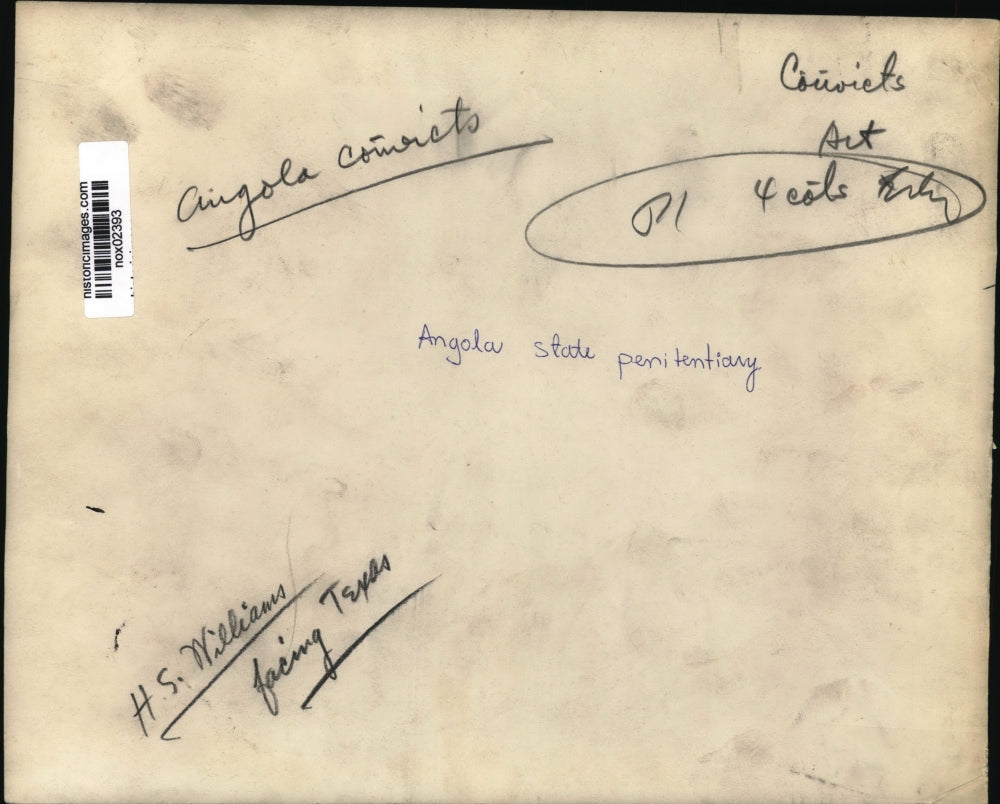 Convicts
Art
Angola convicts
P1 4 cols
historicimages.com
nox02393
Angola state penitentiary
H.S. Williams
facing Texas